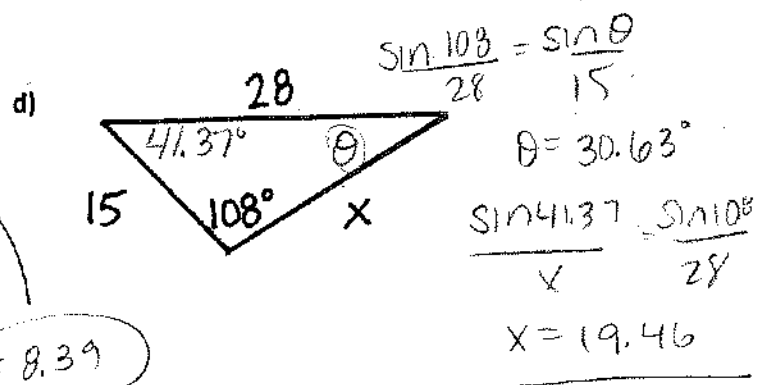 d)
28
41.37°
θ
15
108°
x
sin 108/28 = sin θ/15
θ = 30.63°
sin 41.37/x = sin 108/28
x = 19.46
= 8.39